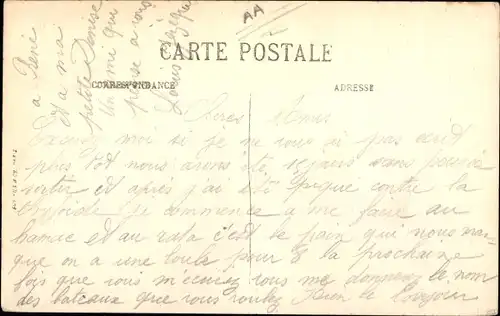 AA
CARTE POSTALE
CORRESPONDANCE
ADRESSE
a René
et a ma
petite Denise
un ami qui
pense a vous
Louis
Chères Amis
Excusez moi si je ne vous ai pas écrit
plus tôt nous avons été 15 jours sans pouvoir
sortir et après j'ai été piqué contre la
typhoide je commence a me faire au
hamac et au rata c'est le pain qui nous man-
que on a une boule pour 8 la prochaine
fois que vous m'écrirez vous me donnerez le nom
des bateaux que vous voulez Bien le bonjour